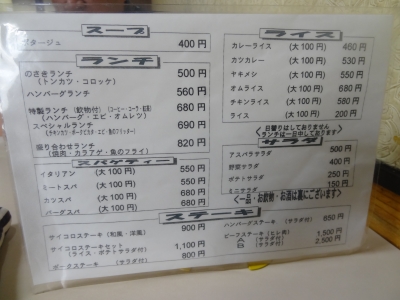 スープ
ポタージュ 400円
ランチ
のざきランチ 500円
(トンカツ・コロッケ)
ハンバーグランチ 560円
特製ランチ(飲物付)(コーヒー・コーラ・紅茶) 680円
(ハンバーグ・エビ・オムレツ)
スペシャルランチ 690円
盛り合わせランチ 820円
(焼肉・カラアゲ・魚のフライ)
スパゲティー
イタリアン (大100円) 550円
ミートスパ (大100円) 550円
カツスパ (大100円) 680円
バーグスパ (大100円) 680円
ライス
カレーライス (大100円) 460円
カツカレー (大100円) 530円
ヤキメシ (大100円) 550円
オムライス (大100円) 680円
チキンライス (大100円) 580円
ライス (大100円) 200円
日替りはしておりません
ランチは一日中しております
サラダ
アスパラサラダ 500円
野菜サラダ 400円
ポテトサラダ 250円
ミニサラダ 150円
<一品・お飲物・お酒は裏にございます>
ステーキ
サイコロステーキ(和風・洋風) 900円
サイコロステーキセット 1,100円
(ライス・ポテトサラダ付)
ポークステーキ (サラダ付) 800円
ハンバーグステーキ (サラダ付) 650円
ビーフステーキ(ヒレ肉)
A (サラダ付) 1,500円
B (サラダ付) 2,500円